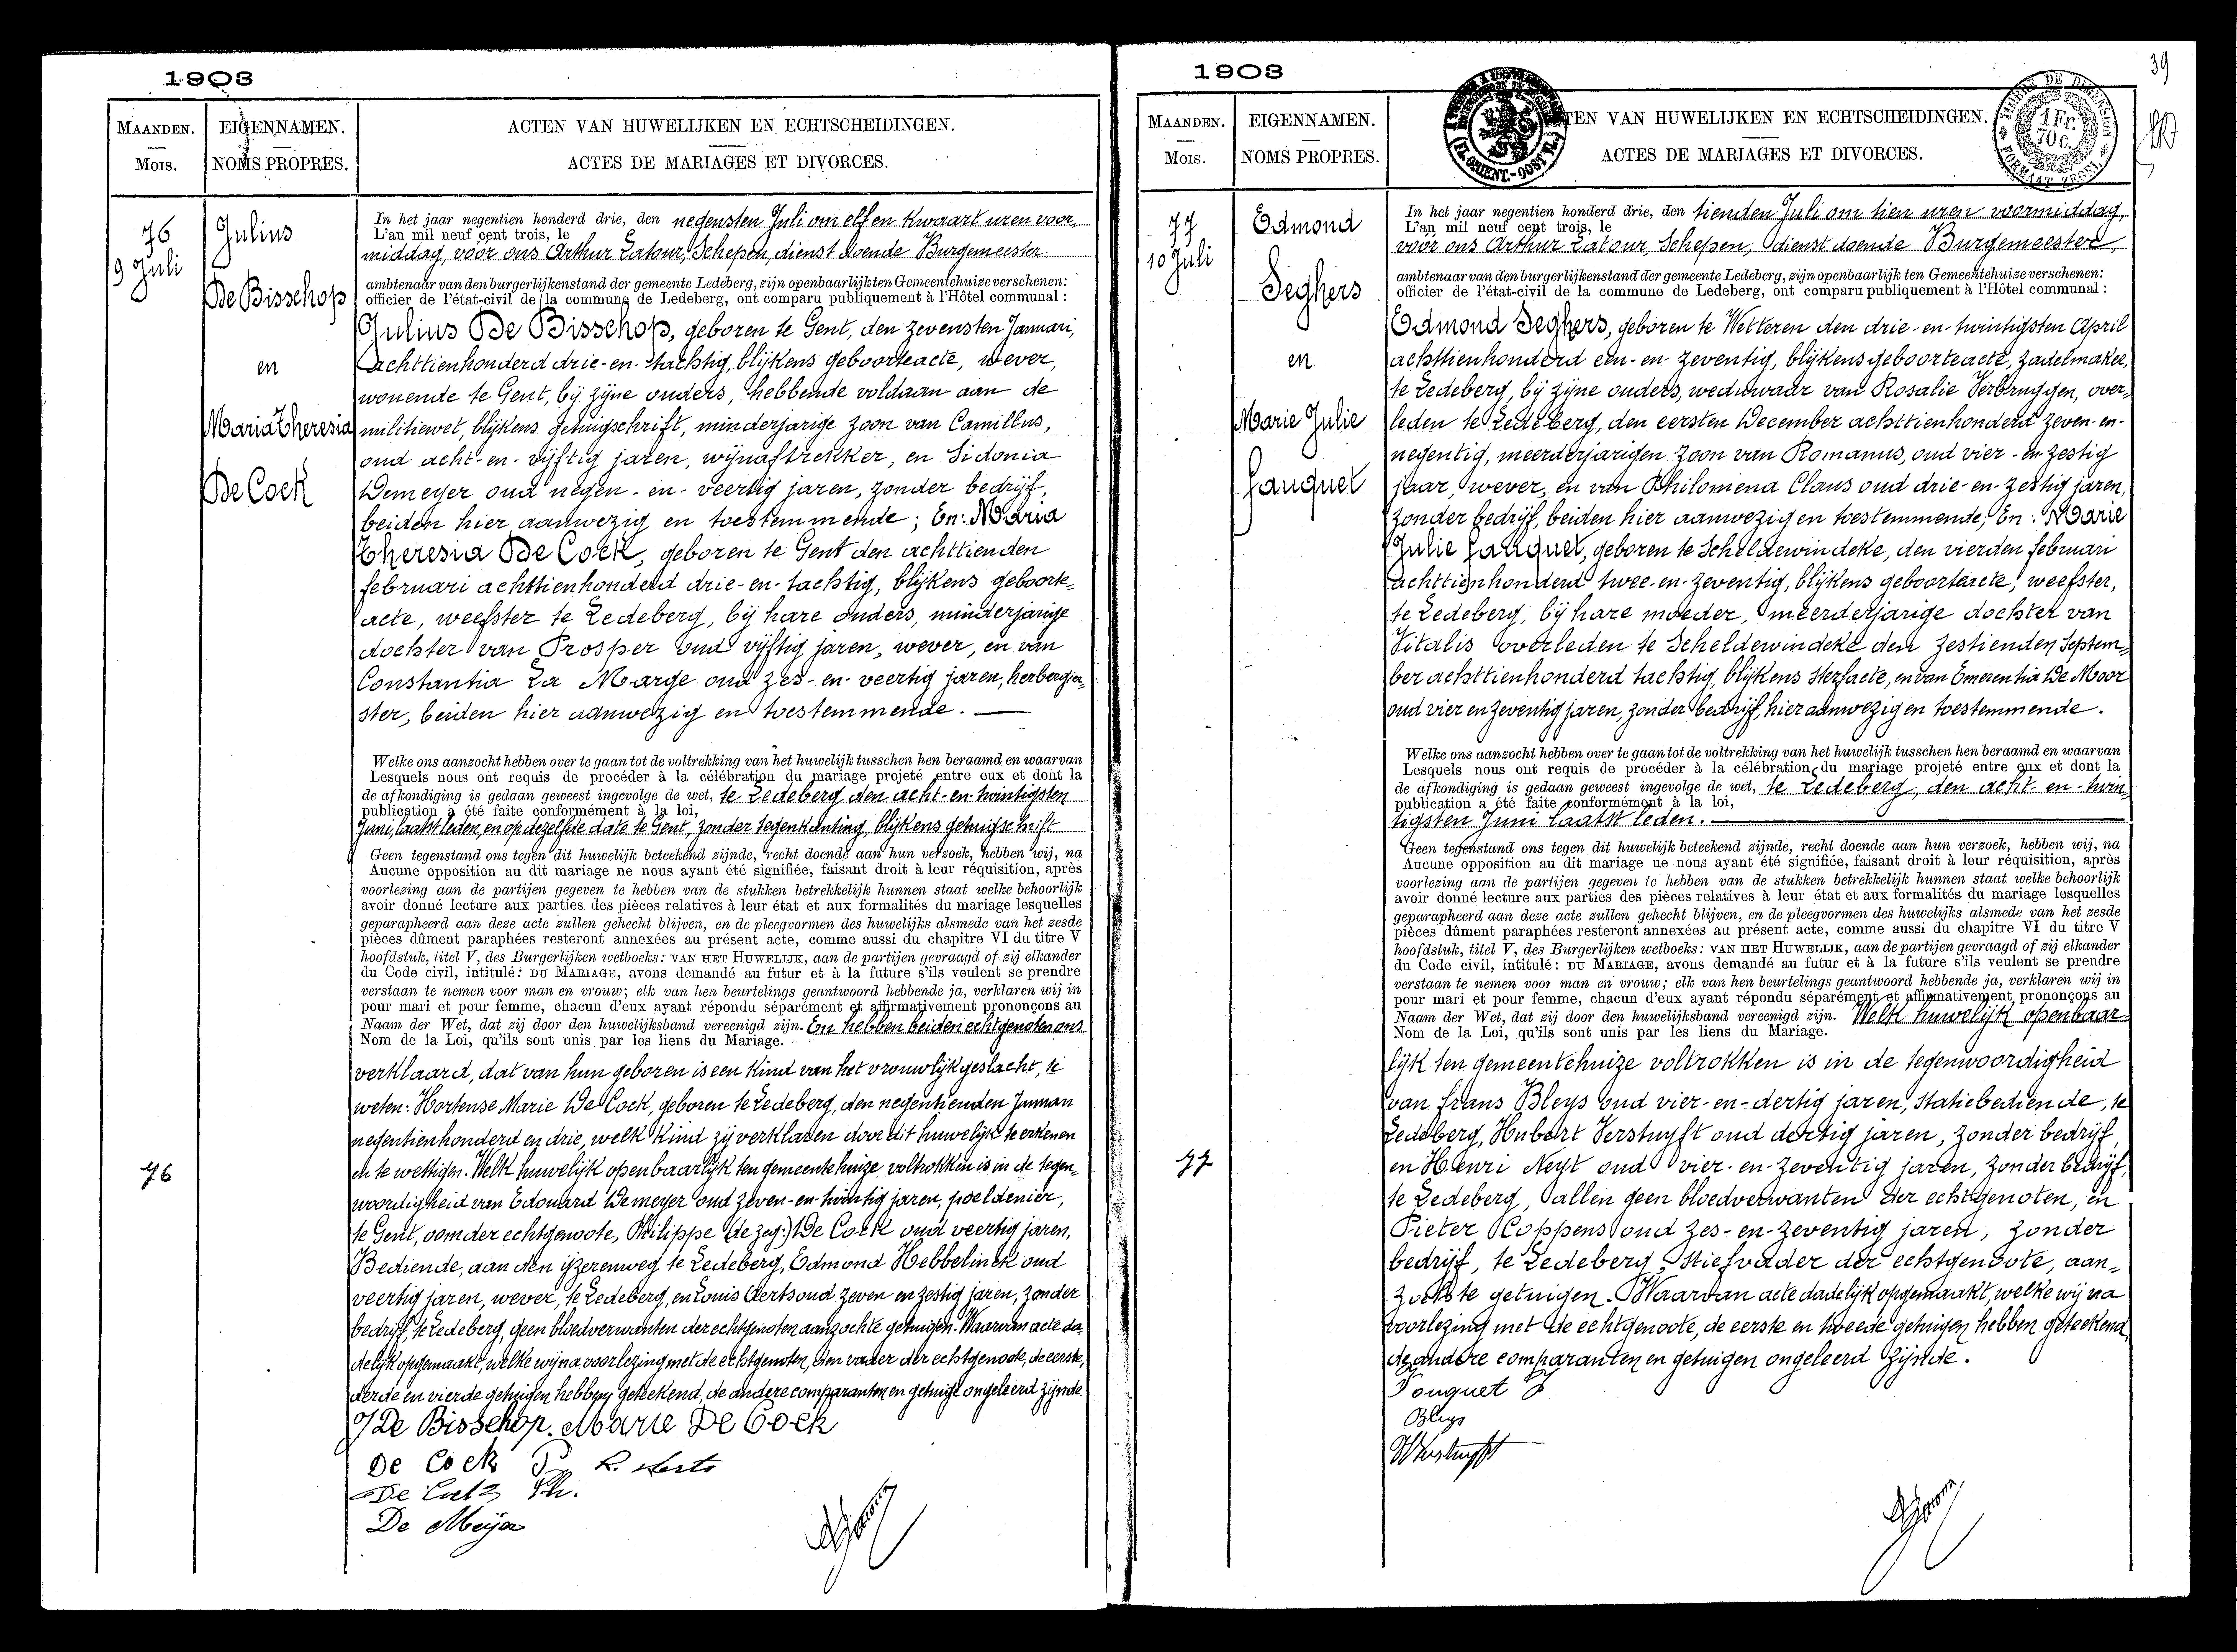 1903
MAANDEN.
Mois.
EIGENNAMEN.
NOMS PROPRES.
ACTEN VAN HUWELIJKEN EN ECHTSCHEIDINGEN.
ACTES DE MARIAGES ET DIVORCES.
76
9 Juli
Julius
De Bisschop
en
Maria Theresia
De Cock
In het jaar negentien honderd drie, den negensten Juli om elf en kwaart uren voor-
L'an mil neuf cent trois, le
middag, voor ons Arthur Latour, Schepen, dienst doende Burgemeester
ambtenaar van den burgerlijkenstand der gemeente Ledeberg, zijn openbaarlijk ten Gemeentehuize verschenen:
officier de l'état-civil de la commune de Ledeberg, ont comparu publiquement à l'Hôtel communal :
Julius De Bisschop, geboren te Gent, den zevensten Januari,
achttienhonderd drie-en-tachtig, blijkens geboorteacte, wever,
wonende te Gent, bij zijne ouders, hebbende voldaan aan de
militiewet, blijkens getuigschrift, minderjarige zoon van Camillus,
oud acht-en-vijftig jaren, wijnaftrekker, en Sidonia
Demeyer oud negen-en-veertig jaren, zonder bedrijf,
beiden hier aanwezig en toestemmende; En: Maria
Theresia De Cock, geboren te Gent den achttienden
februari achttienhonderd drie-en-tachtig, blijkens geboorte-
acte, weefster te Ledeberg, bij hare ouders, minderjarige
dochter van Prosper oud vijftig jaren, wever, en van
Constantia La Marge oud zes-en-veertig jaren, herbergier-
ster, beiden hier aanwezig en toestemmende.
Welke ons aanzocht hebben over te gaan tot de voltrekking van het huwelijk tusschen hen beraamd en waarvan
Lesquels nous ont requis de procéder à la célébration du mariage projeté entre eux et dont la
de afkondiging is gedaan geweest ingevolge de wet, te Ledeberg den acht-en-twintigsten
publication a été faite conformément à la loi,
Juni, laatst leden, en op dezelfde date te Gent, zonder tegenkanting, blijkens getuigschrift
Geen tegenstand ons tegen dit huwelijk beteekend zijnde, recht doende aan hun verzoek, hebben wij, na
Aucune opposition au dit mariage ne nous ayant été signifiée, faisant droit à leur réquisition, après
voorlezing aan de partijen gegeven te hebben van de stukken betrekkelijk hunnen staat welke behoorlijk
avoir donné lecture aux parties des pièces relatives à leur état et aux formalités du mariage lesquelles
geparapheerd aan deze acte zullen gehecht blijven, en de pleegvormen des huwelijks alsmede van het zesde
pièces dûment paraphées resteront annexées au présent acte, comme aussi du chapitre VI du titre V
hoofdstuk, titel V, des Burgerlijken wetboeks: VAN HET HUWELIJK, aan de partijen gevraagd of zij elkander
du Code civil, intitulé: DU MARIAGE, avons demandé au futur et à la future s'ils veulent se prendre
verstaan te nemen voor man en vrouw; elk van hen beurtelings geantwoord hebbende ja, verklaren wij in
pour mari et pour femme, chacun d'eux ayant répondu séparément et affirmativement prononçons au
Naam der Wet, dat zij door den huwelijksband vereenigd zijn. En hebben beiden echtgenoten ons
Nom de la Loi, qu'ils sont unis par les liens du Mariage.
verklaard, dat van hun geboren is een kind van het vrouwlijk geslacht, te
weten: Hortense Marie De Cock, geboren te Ledeberg, den negentienden Januari
negentienhonderd en drie, welk kind zij verklaren door dit huwelijk te erkenen
en te wettigen. Welk huwelijk openbaarlijk ten gemeentehuize voltrokken is in de tegen-
woordigheid van Edouard Demeyer oud zeven-en-twintig jaren, poeldenier,
te Gent, oom der echtgenoote, Philippe (de zeg:) De Cock oud veertig jaren,
Bediende, aan den ijzerenweg te Ledeberg, Edmond Hebbelinck oud
veertig jaren, wever, te Ledeberg, en Louis Aerts oud zeven en zestig jaren, zonder
bedrijf, te Ledeberg, geen bloedverwanten der echtgenoten aanzochte getuigen. Waarvan acte da-
delijk opgemaakt, welke wij na voorlezing met de echtgenoten, den vader der echtgenoote, de eerste,
derde en vierde getuigen hebben geteekend, de andere comparanten en getuige ongeleerd zijnde.
76
J De Bisschop. Marie De Cock
De Cock P. L. Aerts
De Meyer
1903
39
MAANDEN.
Mois.
EIGENNAMEN.
NOMS PROPRES.
TEN VAN HUWELIJKEN EN ECHTSCHEIDINGEN.
ACTES DE MARIAGES ET DIVORCES.
77
10 Juli
Edmond
Seghers
en
Marie Julie
Fauquet
In het jaar negentien honderd drie, den tienden Juli om tien uren voormiddag,
L'an mil neuf cent trois, le
voor ons Arthur Latour, Schepen, dienst doende Burgemeester
ambtenaar van den burgerlijkenstand der gemeente Ledeberg, zijn openbaarlijk ten Gemeentehuize verschenen:
officier de l'état-civil de la commune de Ledeberg, ont comparu publiquement à l'Hôtel communal :
Edmond Seghers, geboren te Wetteren den drie-en-twintigsten April
achttienhonderd een-en-zeventig, blijkens geboorteacte, zadelmaker,
te Ledeberg, bij zijne ouders, weduwaar van Rosalie Verbruggen, over-
leden te Ledeberg, den eersten December achttienhonderd zeven-en-
negentig, meerderjarigen zoon van Romanus, oud vier-en-zestig
jaar, wever, en van Philomena Claus oud drie-en-zestig jaren,
zonder bedrijf, beiden hier aanwezig en toestemmende; En: Marie
Julie Fauquet, geboren te Scheldewindeke, den vierden februari
achttienhonderd twee-en-zeventig, blijkens geboorteacte, weefster,
te Ledeberg, bij hare moeder, meerderjarige dochter van
Vitalis overleden te Scheldewindeke den zestienden Septem-
ber achttienhonderd tachtig, blijkens sterfacte, en van Emerentia De Moor
oud vier en zeventig jaren, zonder bedrijf, hier aanwezig en toestemmende.
Welke ons aanzocht hebben over te gaan tot de voltrekking van het huwelijk tusschen hen beraamd en waarvan
Lesquels nous ont requis de procéder à la célébration du mariage projeté entre eux et dont la
de afkondiging is gedaan geweest ingevolge de wet, te Ledeberg, den acht-en-twin-
publication a été faite conformément à la loi,
tigsten Juni laatst leden.
Geen tegenstand ons tegen dit huwelijk beteekend zijnde, recht doende aan hun verzoek, hebben wij, na
Aucune opposition au dit mariage ne nous ayant été signifiée, faisant droit à leur réquisition, après
voorlezing aan de partijen gegeven te hebben van de stukken betrekkelijk hunnen staat welke behoorlijk
avoir donné lecture aux parties des pièces relatives à leur état et aux formalités du mariage lesquelles
geparapheerd aan deze acte zullen gehecht blijven, en de pleegvormen des huwelijks alsmede van het zesde
pièces dûment paraphées resteront annexées au présent acte, comme aussi du chapitre VI du titre V
hoofdstuk, titel V, des Burgerlijken wetboeks: VAN HET HUWELIJK, aan de partijen gevraagd of zij elkander
du Code civil, intitulé: DU MARIAGE, avons demandé au futur et à la future s'ils veulent se prendre
verstaan te nemen voor man en vrouw; elk van hen beurtelings geantwoord hebbende ja, verklaren wij in
pour mari et pour femme, chacun d'eux ayant répondu séparément et affirmativement prononçons au
Naam der Wet, dat zij door den huwelijksband vereenigd zijn. Welk huwelijk openbaar-
Nom de la Loi, qu'ils sont unis par les liens du Mariage.
lijk ten gemeentehuize voltrokken is in de tegenwoordigheid
van Frans Bleys oud vier-en-dertig jaren, statiebediende, te
Ledeberg, Hubert Verstuyft oud dertig jaren, zonder bedrijf,
en Henri Neyt oud vier-en-zeventig jaren, zonder bedrijf,
te Ledeberg, allen geen bloedverwanten der echtgenoten, en
Pieter Coppens oud zes-en-zeventig jaren, zonder
bedrijf, te Ledeberg, stiefvader der echtgenoote, aan-
zochte getuigen. Waarvan acte dadelijk opgemaakt, welke wij na
voorlezing met de echtgenoote, de eerste en tweede getuigen hebben geteekend,
de andere comparanten en getuigen ongeleerd zijnde.
77
Fouquet J
Bleys
HVerstuyft